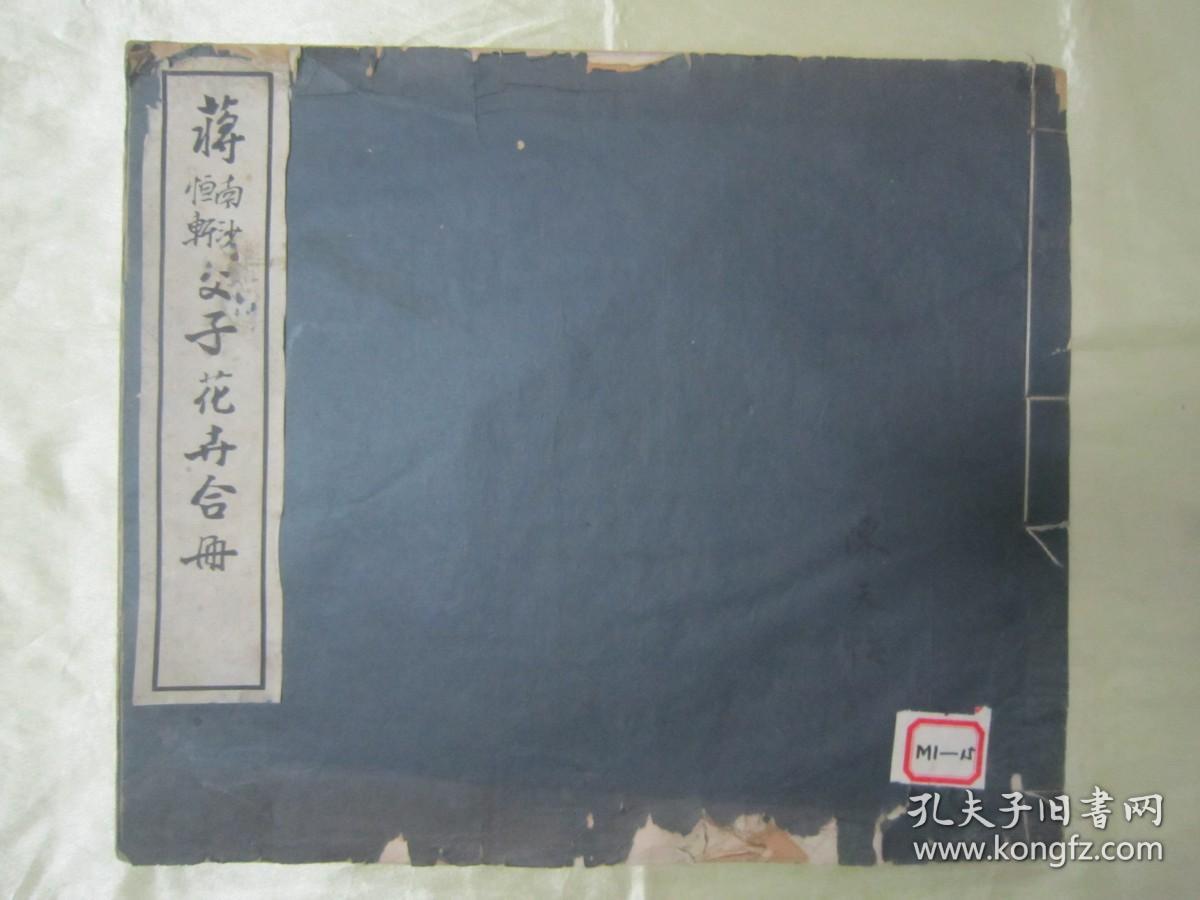 蔣南沙恒軒父子花卉合冊
陳
M1-15
孔夫子旧書网
www.kongfz.com